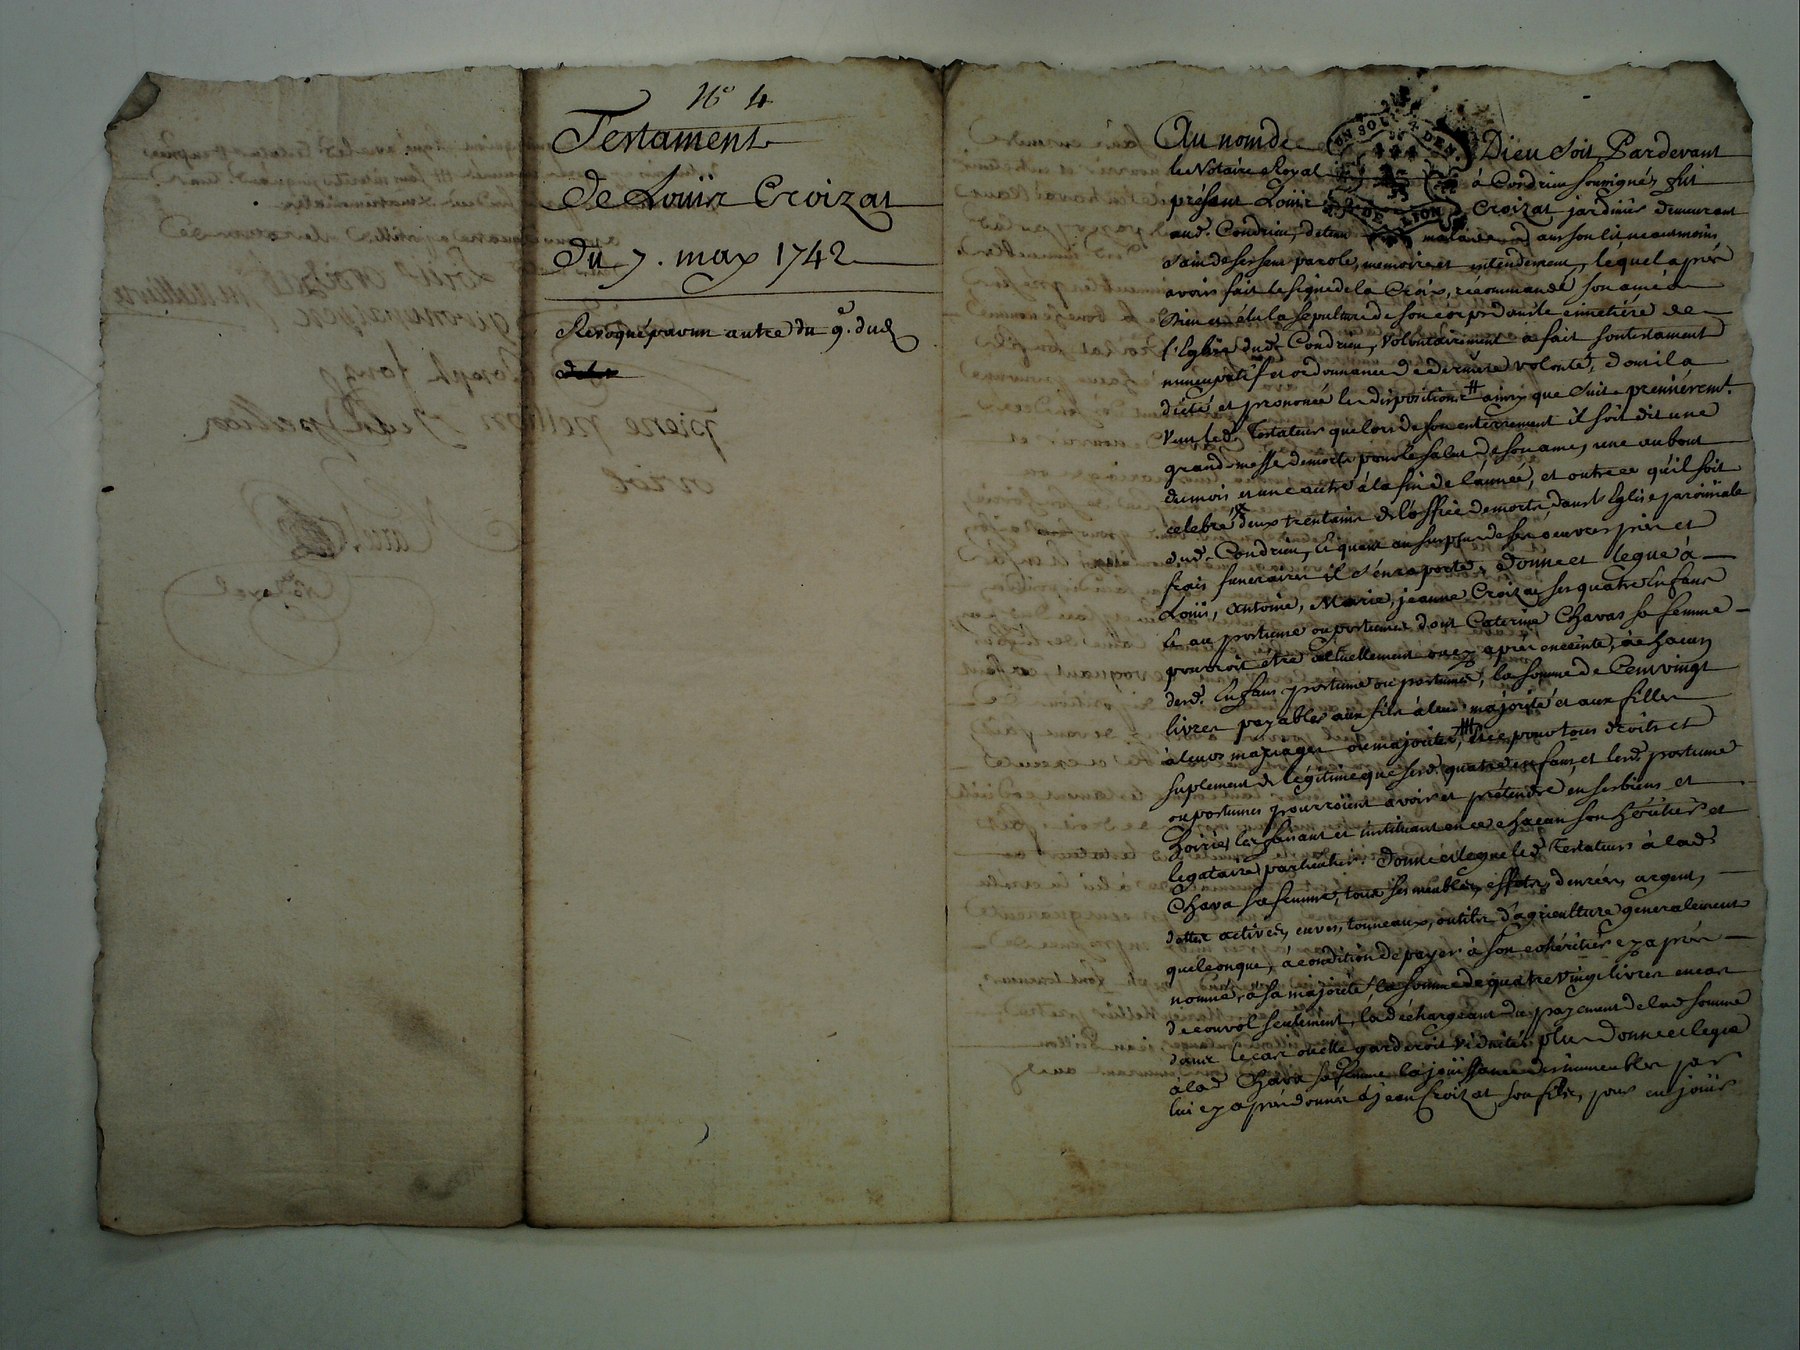 N.o 4
Testament
de Louis Croizat
du 7. may 1742
Revoqué par un autre du 9.e dud.
Au nom de Dieu soit Pardevant
le Notaire Royal à Condrieu soussigné, fut
présent Louis Croizat jardinier demeurant
aud. Condrieu, detenu malade dans son lit neaumoins
sain de ses sens parole, memoire et entendement, lequel aprés
avoir fait le signe de la Croix, recommandé son ame à
Dieu et élu la sepulture de son corps dans le cimetiére de
l'Eglise dud. Condrieu, volontairement a fait son testament
nuncupatif et ordonnance de derniere volonté, dont il a
dicté et prononcé les dispositions # ainsy que suit. premiérem.t
veut led. Testateur que lors de son enterrement il soit dit une
grand messe de morts pour le salut de son ame, une au bout
du mois et une autre à la fin de l'année, et outre ce qu'il soit
celebré deux trentains de l'office de morts, dans l'Eglise paroissiale
dud. Condrieu, et quant au surplus de ses oeuvres pies et
frais funeraires il s'en raporte, Donne et legue à
Louis, Antoine, Marie, jeanne Croizat ses quatre Enfans
et au postume ou postumes dont Caterine Chavas sa femme
pourroit être actuellement ou cy aprés enceinte, à chacun
desd. Enfans postume ou postumes, la somme de Cent vingt
livres payables aux fils à leur majorité et aux filles
à leurs mariages ou majorités, # et ce pour tous droits et
suplement de légitime que sesd. quatre enfans et lesd. postume
ou postumes pourroient avoir et prétendre en ses biens et
hoirie, les faisant et instituant en ce chacun son héritier et
legataire particulier. Donne et legue led. Testateur à lad.
Chava sa femme, tous ses meubles, effets, denrées, argent,
dettes actives, cuves, tonneaux, outils d'agriculture generalement
quelconque, à condition de payer à son cohéritier cy aprés
nommé, à sa majorité la somme de quatre vingt livres en cas
de convol seulement, la déchargeant du payement de lad. somme
dans le cas ou elle garderoit viduité. plus Donne et legue
à lad. Chava sa femme la joüissance des immeubles par
lui cy aprés donnés à jean Croizat son fils, pour en joüir